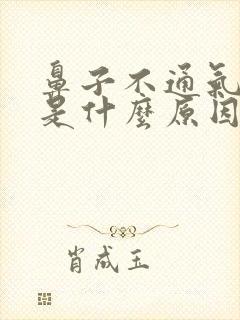 鼻子不通氣
是什麼原因
肖成玉